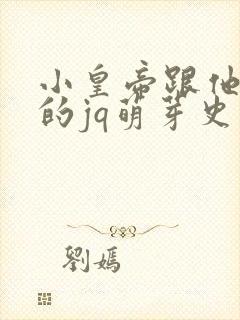 小皇帝跟他
的jq萌芽史
劉媽